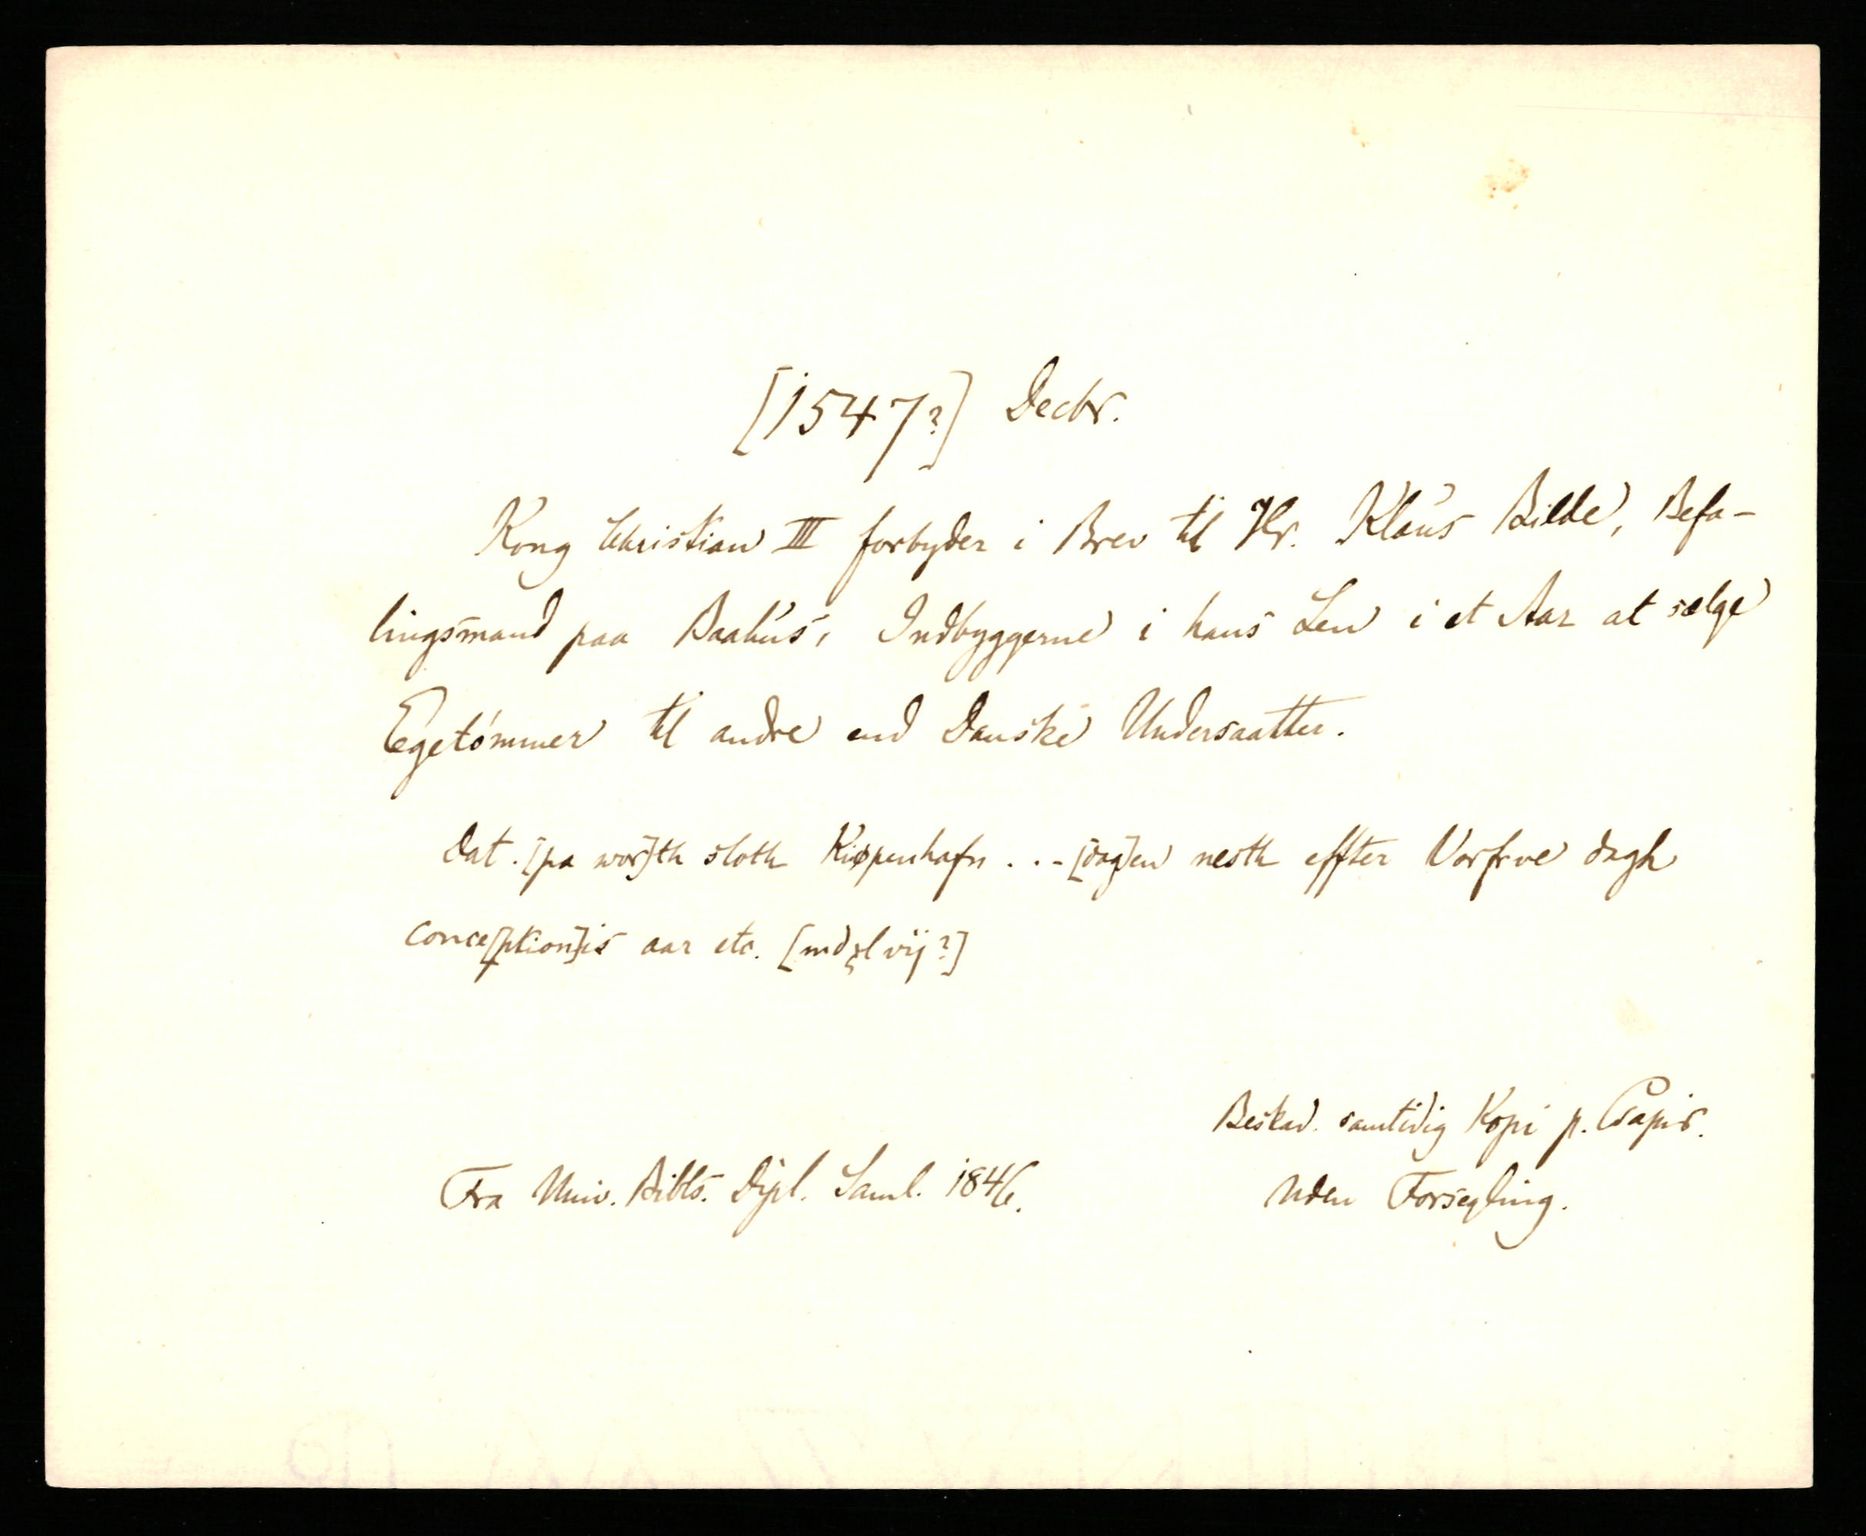 [1547?] Decbr.
Kong Christian III forbyder i Brev til Hr. Klaus Bilde, Befa-
lingsmand paa Baahus, Indbyggerne i hans Len i et Aar at sælge
Egetømmer til andre end Danske Undersaatter.
Dat. [pa wor]th sloth Kiøpenhafn . . - [dag]en nesth effter Vorfrve dagh
conce[ption]is aar etc. [mdxlvij?]
Beskad. samtidig Kopi p. Papir.
Fra Univ. Bibls. Dipl. Saml. 1846.
Uden Forsegling.